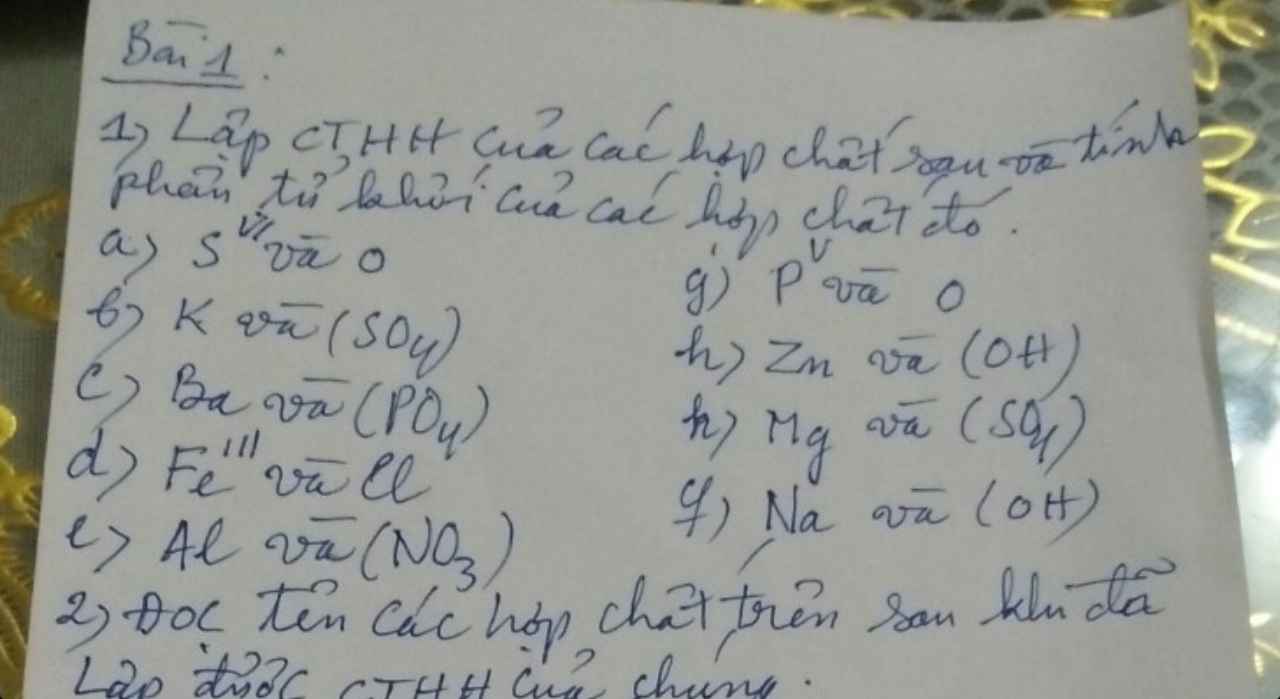 Bài 1:
1) Lập CTHH của các hợp chất sau và tính
phân tử khối của các hợp chất đó.
a) S^VI và O
b) K và (SO4)
c) Ba và (PO4)
d) Fe^III và Cl
e) Al và (NO3)
g) P^V và O
h) Zn và (OH)
k) Mg và (SO4)
q) Na và (OH)
2) Đọc tên các hợp chất trên sau khi đã
lập được CTHH của chúng.